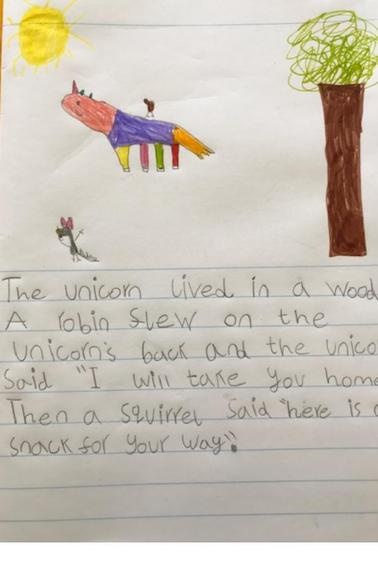 The unicorn lived in a wood
A robin flew on the
unicorn's back and the unico
Said "I will take you home
Then a squirrel said "here is a
snack for your way".